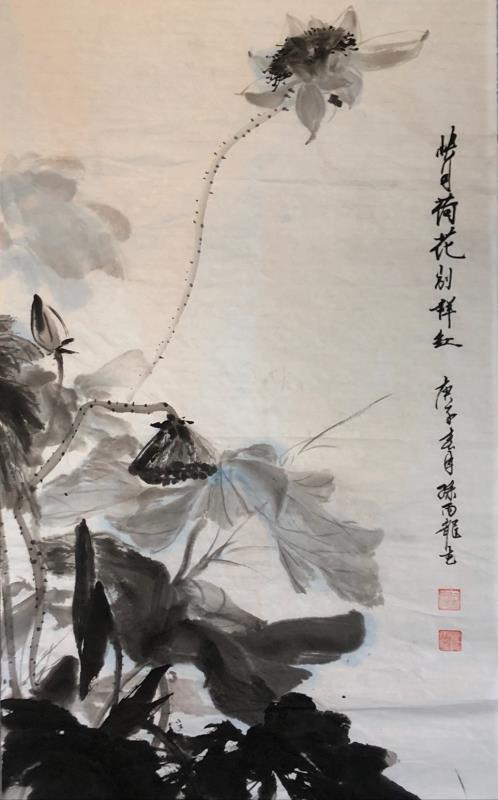 映日荷花别样红 庚子春月孫雨龍